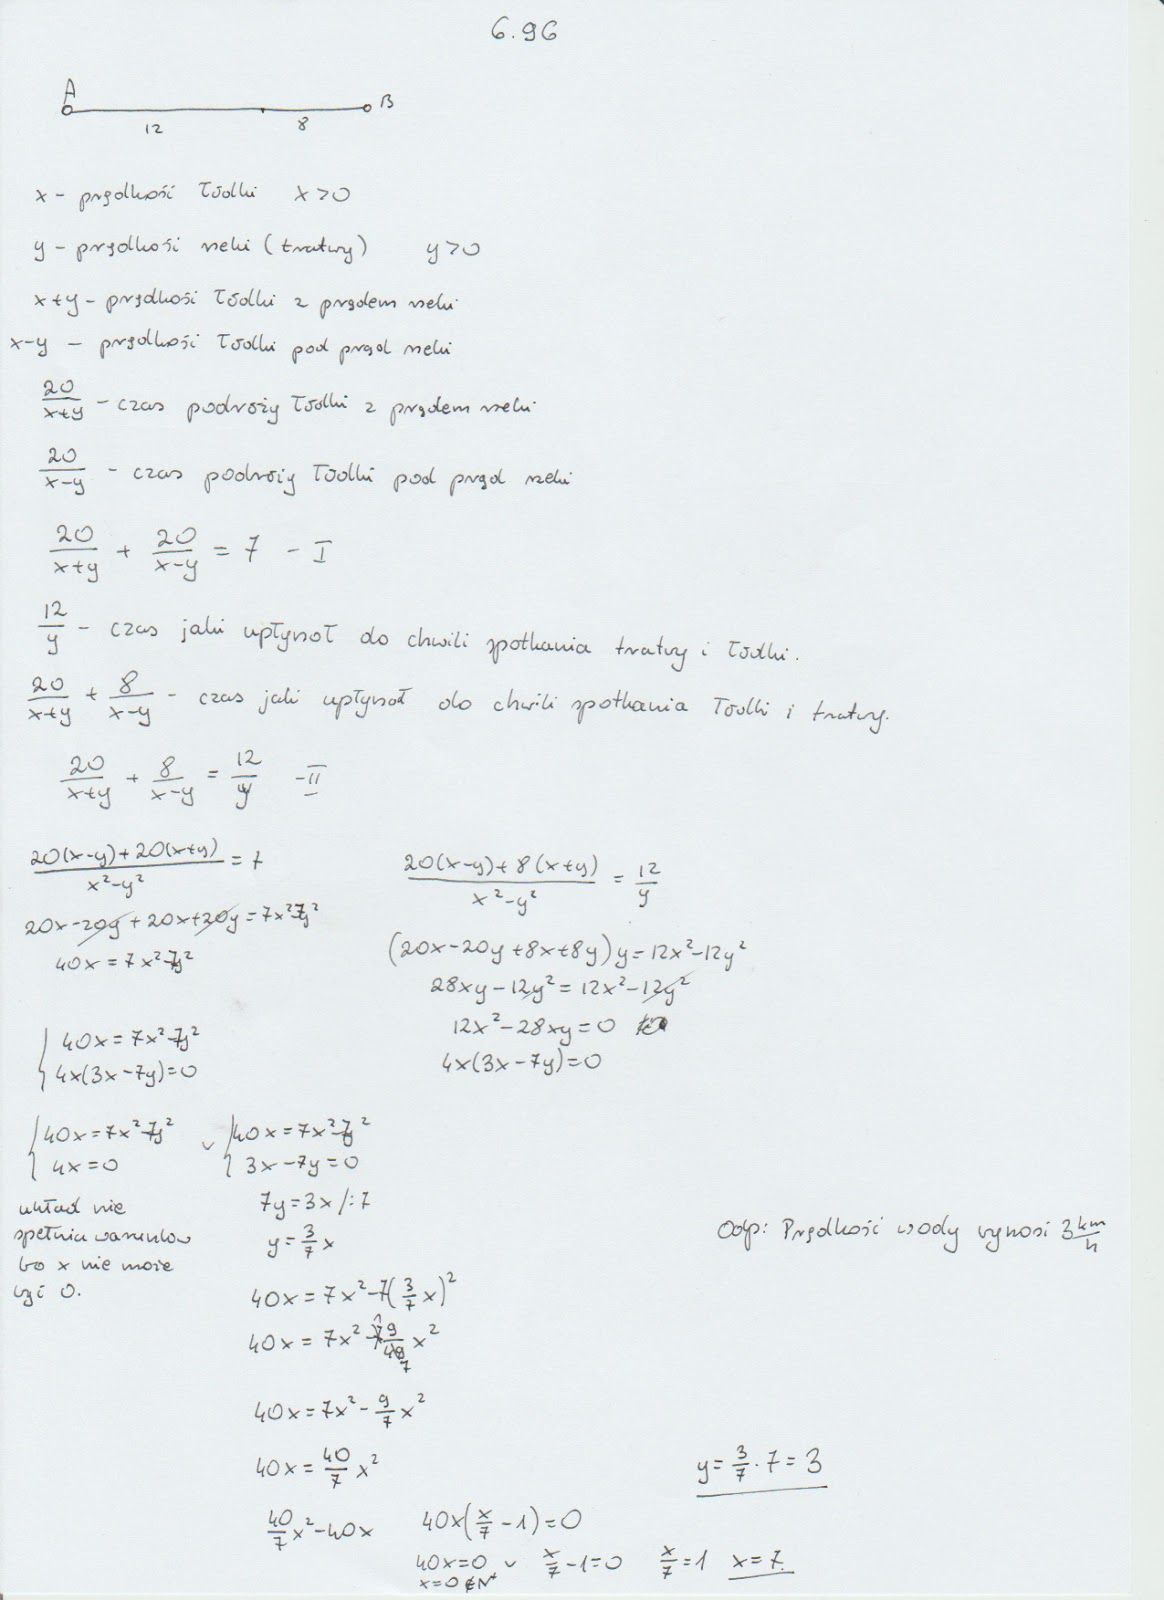 6.96
A B
12 8
x - prędkość łódki x > 0
y - prędkość rzeki (tratwy) y > 0
x+y - prędkość łódki z prądem rzeki
x-y - prędkość łódki pod prąd rzeki
20/(x+y) - czas podroży łódki z prądem rzeki
20/(x-y) - czas podroży łódki pod prąd rzeki
20/(x+y) + 20/(x-y) = 7 - I
12/y - czas jaki upłynoł do chwili spotkania tratwy i łódki.
20/(x+y) + 8/(x-y) - czas jaki upłynoł do chwili spotkania łódki i tratwy.
20/(x+y) + 8/(x-y) = 12/y - II
(20(x-y)+20(x+y))/(x²-y²) = 7
20x-20y+20x+20y=7x²-7y²
40x=7x²-7y²
(20(x-y)+8(x+y))/(x²-y²) = 12/y
(20x-20y+8x+8y)y=12x²-12y²
28xy-12y²=12x²-12y²
12x²-28xy=0
4x(3x-7y)=0
40x=7x²-7y²
4x(3x-7y)=0
40x=7x²-7y² v 40x=7x²-7y²
4x=0 3x-7y=0
układ nie
spełnia warunków
bo x nie może
być 0.
7y=3x/:7
y=3/7 x
40x=7x²-7(3/7 x)²
40x=7x²-7 9/49 x²
7
40x=7x²-9/7 x²
40x=40/7 x²
40/7 x²-40x
40x(x/7-1)=0
40x=0 v x/7-1=0 x/7=1 x=7
x=0 ∉ N⁺
y=3/7·7=3
Odp: Prędkość wody wynosi 3 km/h